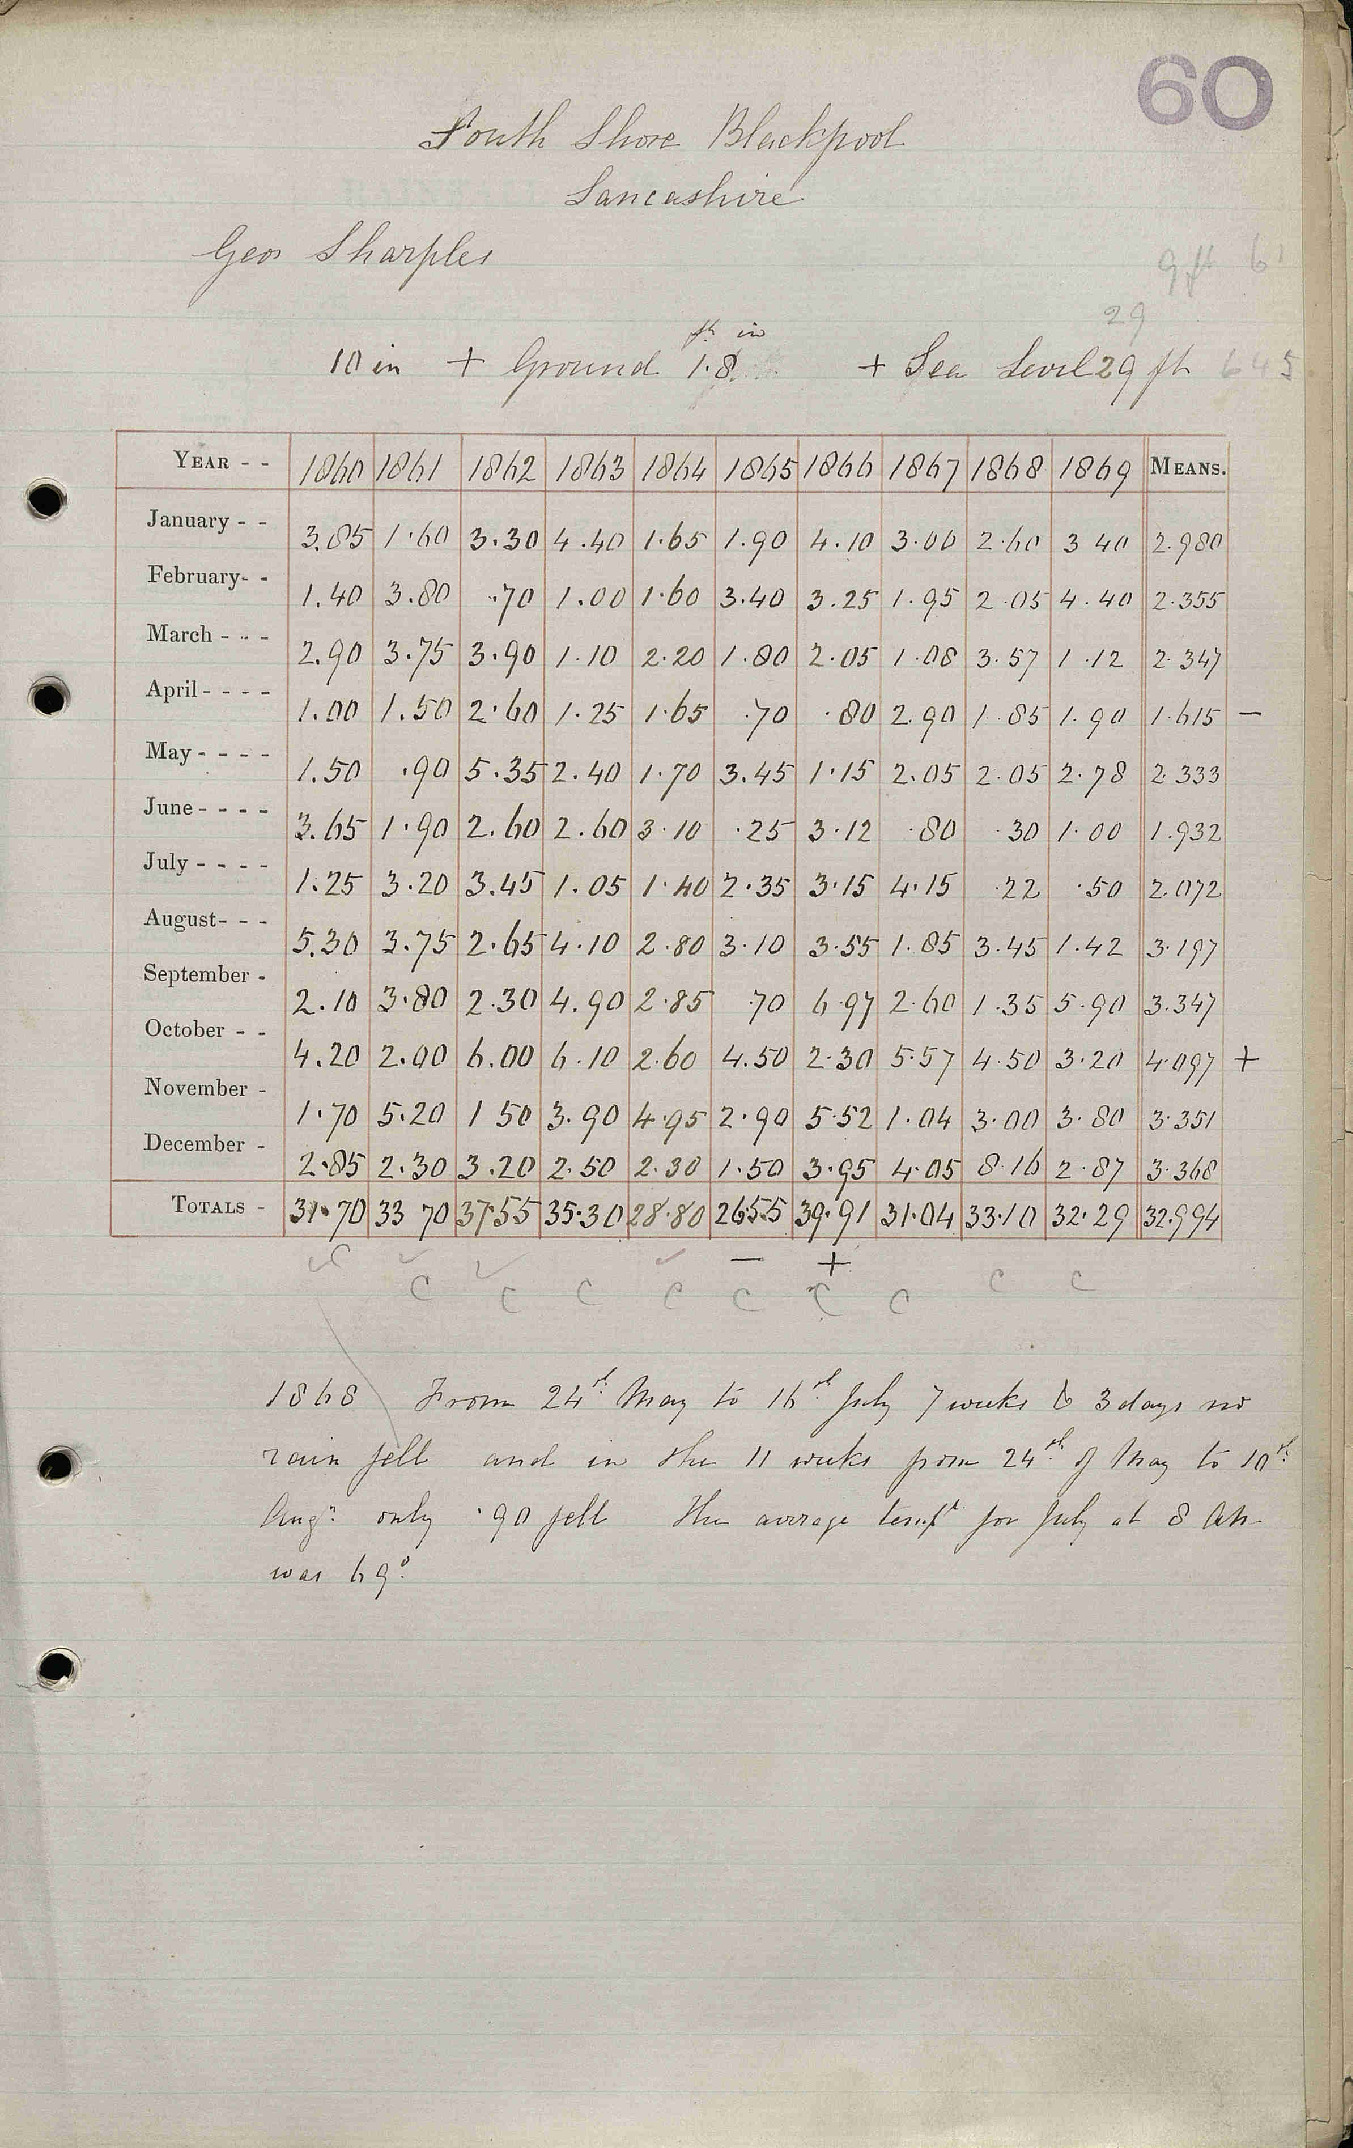 60
South Shore Blackpool
Lancashire
Geo Sharples
9 ft 6
29
ft in
10 in + Ground 1.8 + Sea Level 29 ft 645
YEAR - - 1860 1861 1862 1863 1864 1865 1866 1867 1868 1869 MEANS.
January - - 3.85 1.60 3.30 4.40 1.65 1.90 4.10 3.00 2.60 3 40 2.980
February- - 1.40 3.80 .70 1.00 1.60 3.40 3.25 1.95 2.05 4.40 2.355
March - - - 2.90 3.75 3.90 1.10 2.20 1.80 2.05 1.08 3.57 1.12 2.347
April - - - - 1.00 1.50 2.60 1.25 1.65 .70 .80 2.90 1.85 1.90 1.615 —
May - - - - 1.50 .90 5.35 2.40 1.70 3.45 1.15 2.05 2.05 2.78 2.333
June - - - - 3.65 1.90 2.60 2.60 3.10 .25 3.12 .80 .30 1.00 1.932
July - - - - 1.25 3.20 3.45 1.05 1.40 2.35 3.15 4.15 .22 .50 2.072
August- - - 5.30 3.75 2.65 4.10 2.80 3.10 3.55 1.85 3.45 1.42 3.197
September - 2.10 3.80 2.30 4.90 2.85 .70 6.97 2.60 1.35 5.90 3.347
October - - 4.20 2.00 6.00 6.10 2.60 4.50 2.30 5.57 4.50 3.20 4.097 +
November - 1.70 5.20 1 50 3.90 4.95 2.90 5.52 1.04 3.00 3.80 3.351
December - 2.85 2.30 3.20 2.50 2.30 1.50 3.95 4.05 8.16 2.87 3.368
TOTALS - 31.70 33 70 37.55 35.30 28.80 26.55 39.91 31.04 33.10 32.29 32.994
— +
C C C C C C C C C C
1868 From 24th May to 16th July 7 weeks & 3 days no
rain fell and in the 11 weeks from 24th of May to 10th
Augt only .90 fell The average tempr for July at 8 AM
was 69°